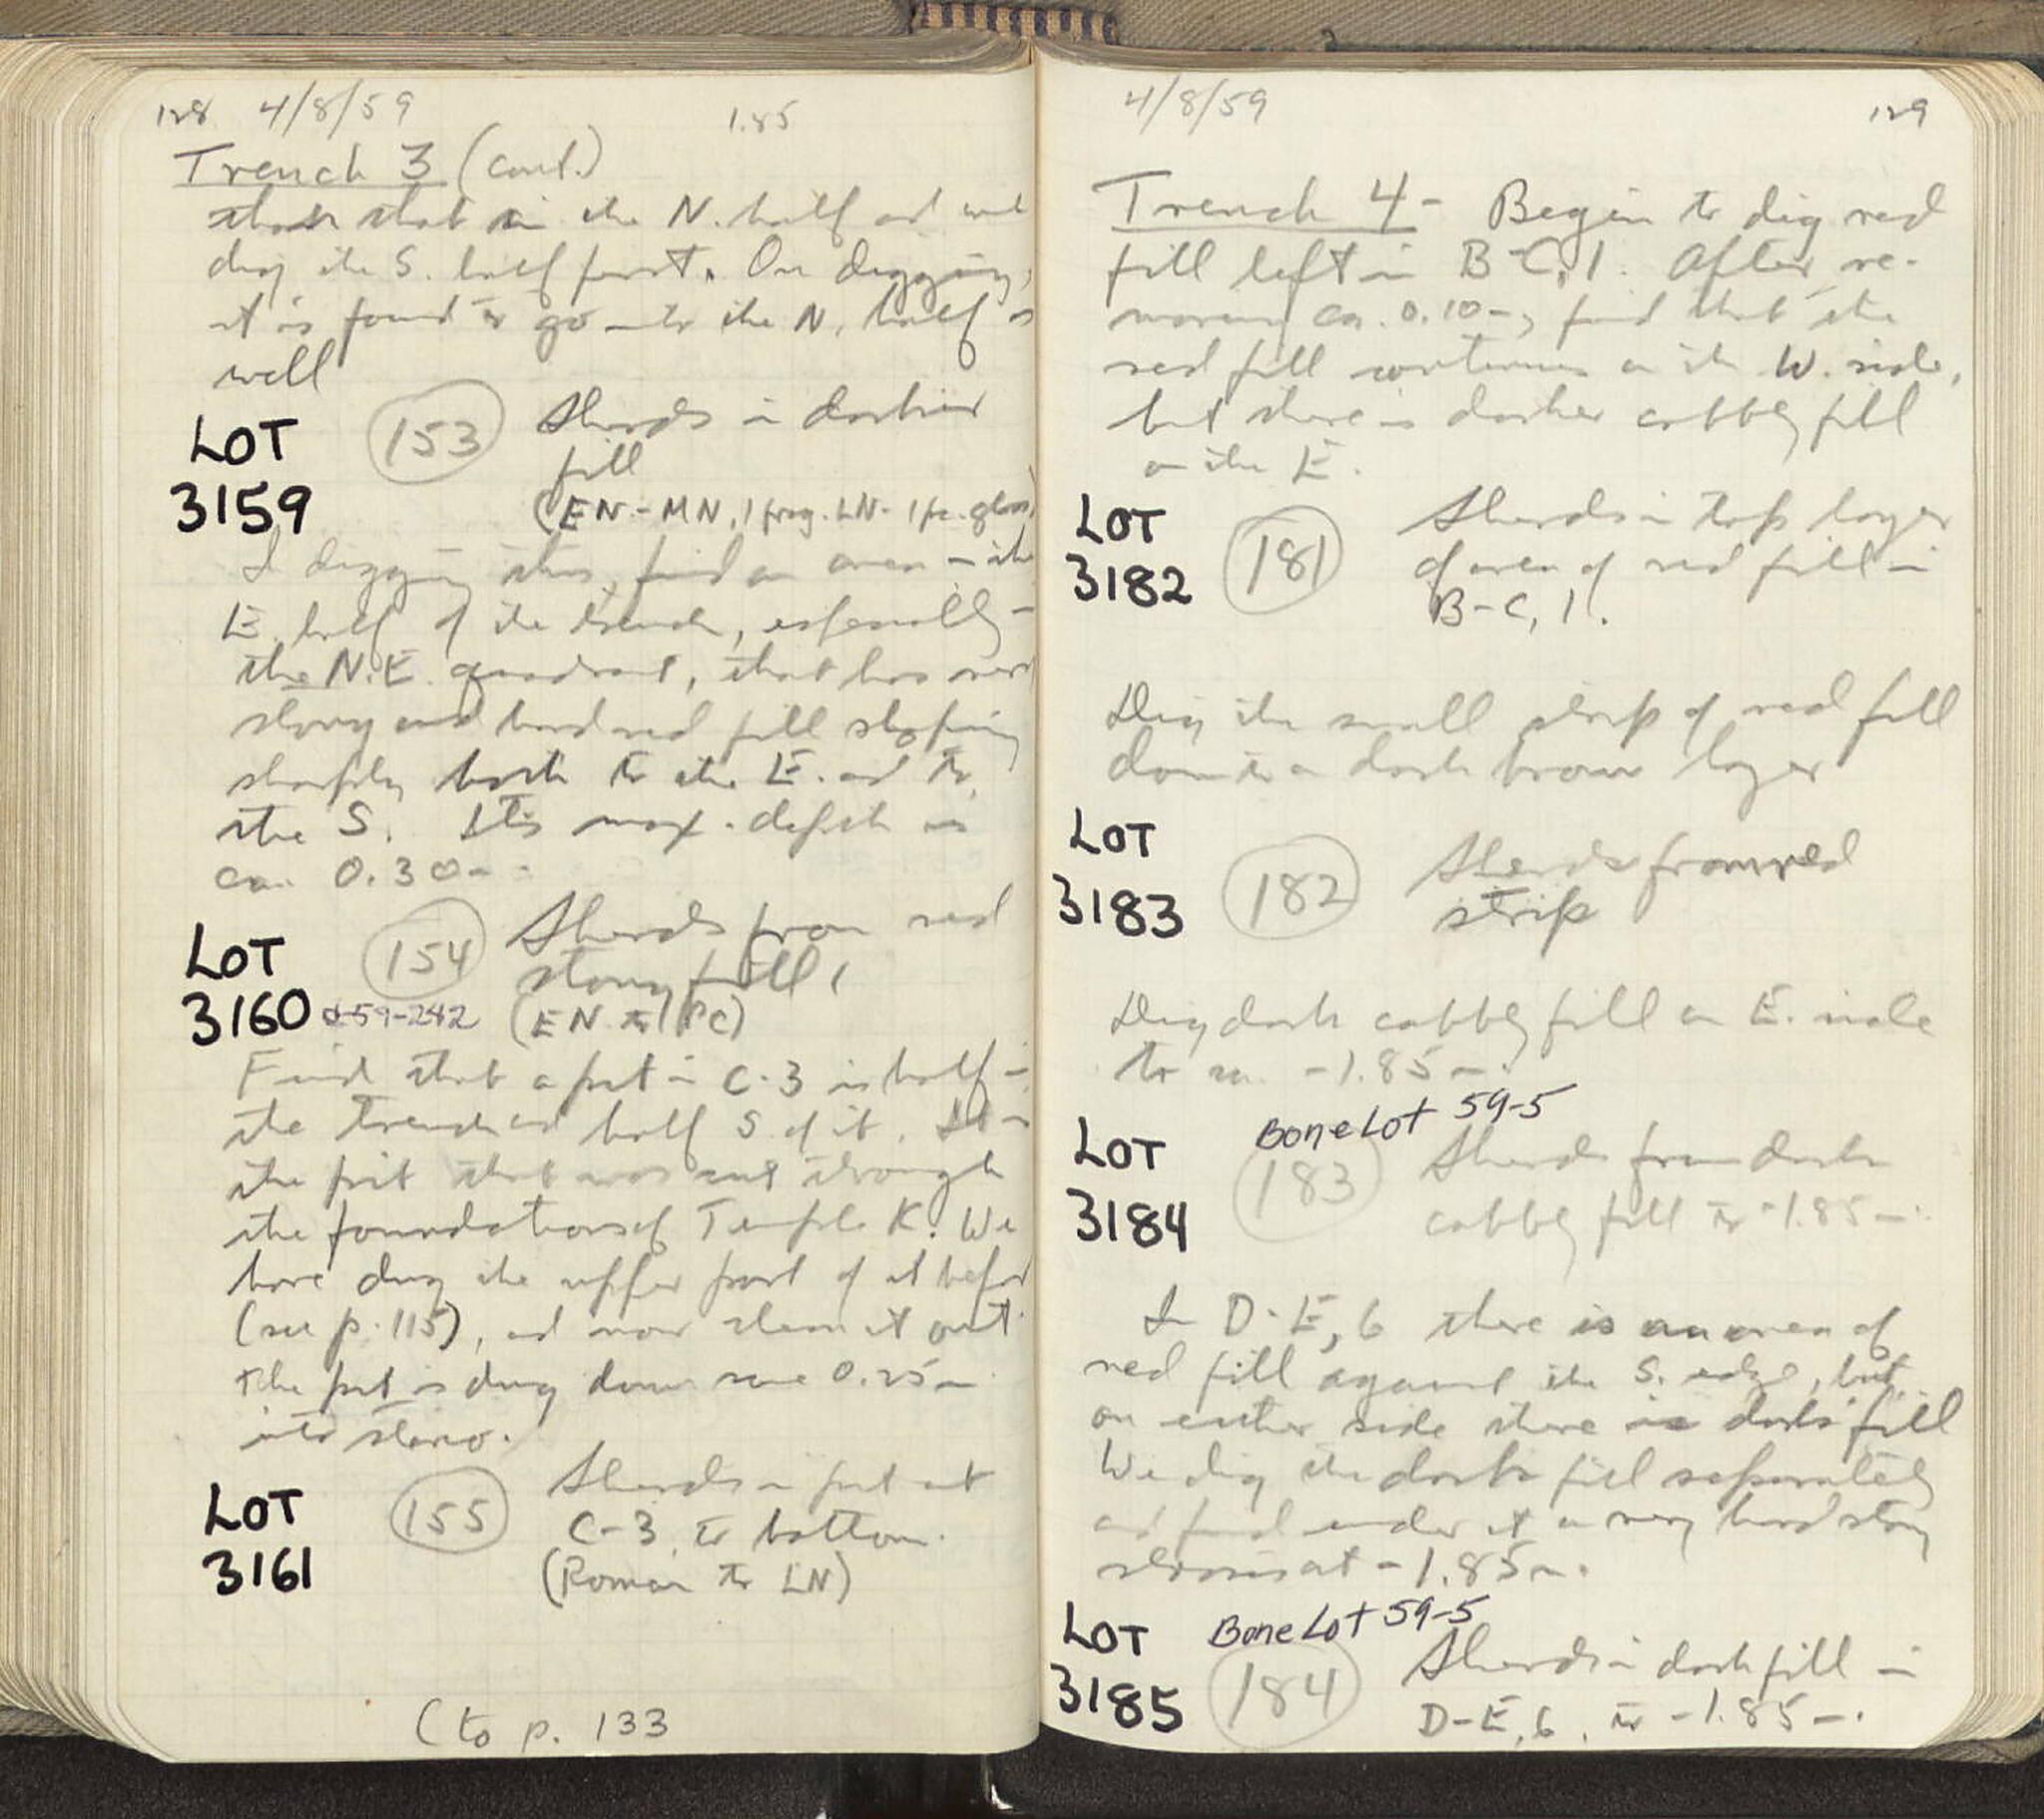 128 4/8/59 1.85
Trench 3 (cont.)
than that in the N. half and we
dig the S. half first. On digging,
it is found to go into the N. half as
well
LOT 3159 (153) Sherds in darker
fill
(EN-MN, 1 frag. LN - 1 pc. glass)
In digging this, find an area in the
E. half of the trench, especially in
the N.E. quadrant, that has very
stony and hard red fill sloping
sharply both to the E. and to
the S. Its max. depth is
ca. 0.30m.
LOT 3160 (154) Sherds from red
stony fill
59-242 (EN to PC)
Find that a pit in C-3 is half in
the trench and half S of it. It is
the pit that was cut through
the foundations of Temple K. We
have dug the upper part of it before
(see p. 115), and now clean it out.
The pit is dug down some 0.25m
into stereo.
LOT 3161 (155) Sherds in pit at
C-3, to bottom.
(Roman to LN)
(to p. 133
4/8/59 129
Trench 4 - Begin to dig red
fill left in B-C, 1. After re-
moving ca. 0.10m, find that the
red fill continues on the W. side,
but there is darker cobbly fill
on the E.
LOT 3182 (181) Sherds in top layer
of area of red fill in
B-C, 1.
Dig the small strip of red fill
down to a dark brown layer
LOT 3183 (182) Sherds from red
strip
Dig dark cobbly fill on E. side
to ca. -1.85m.
Bone Lot 59-5
LOT 3184 (183) Sherds from dark
cobbly fill to -1.85m.
In D-E, 6 there is an area of
red fill against the S. edge, but
on either side there is dark fill
We dig the dark fill separately
and find under it a very hard stony
stereo at -1.85m.
Bone Lot 59-5
LOT 3185 (184) Sherds in dark fill in
D-E, 6, to -1.85m.